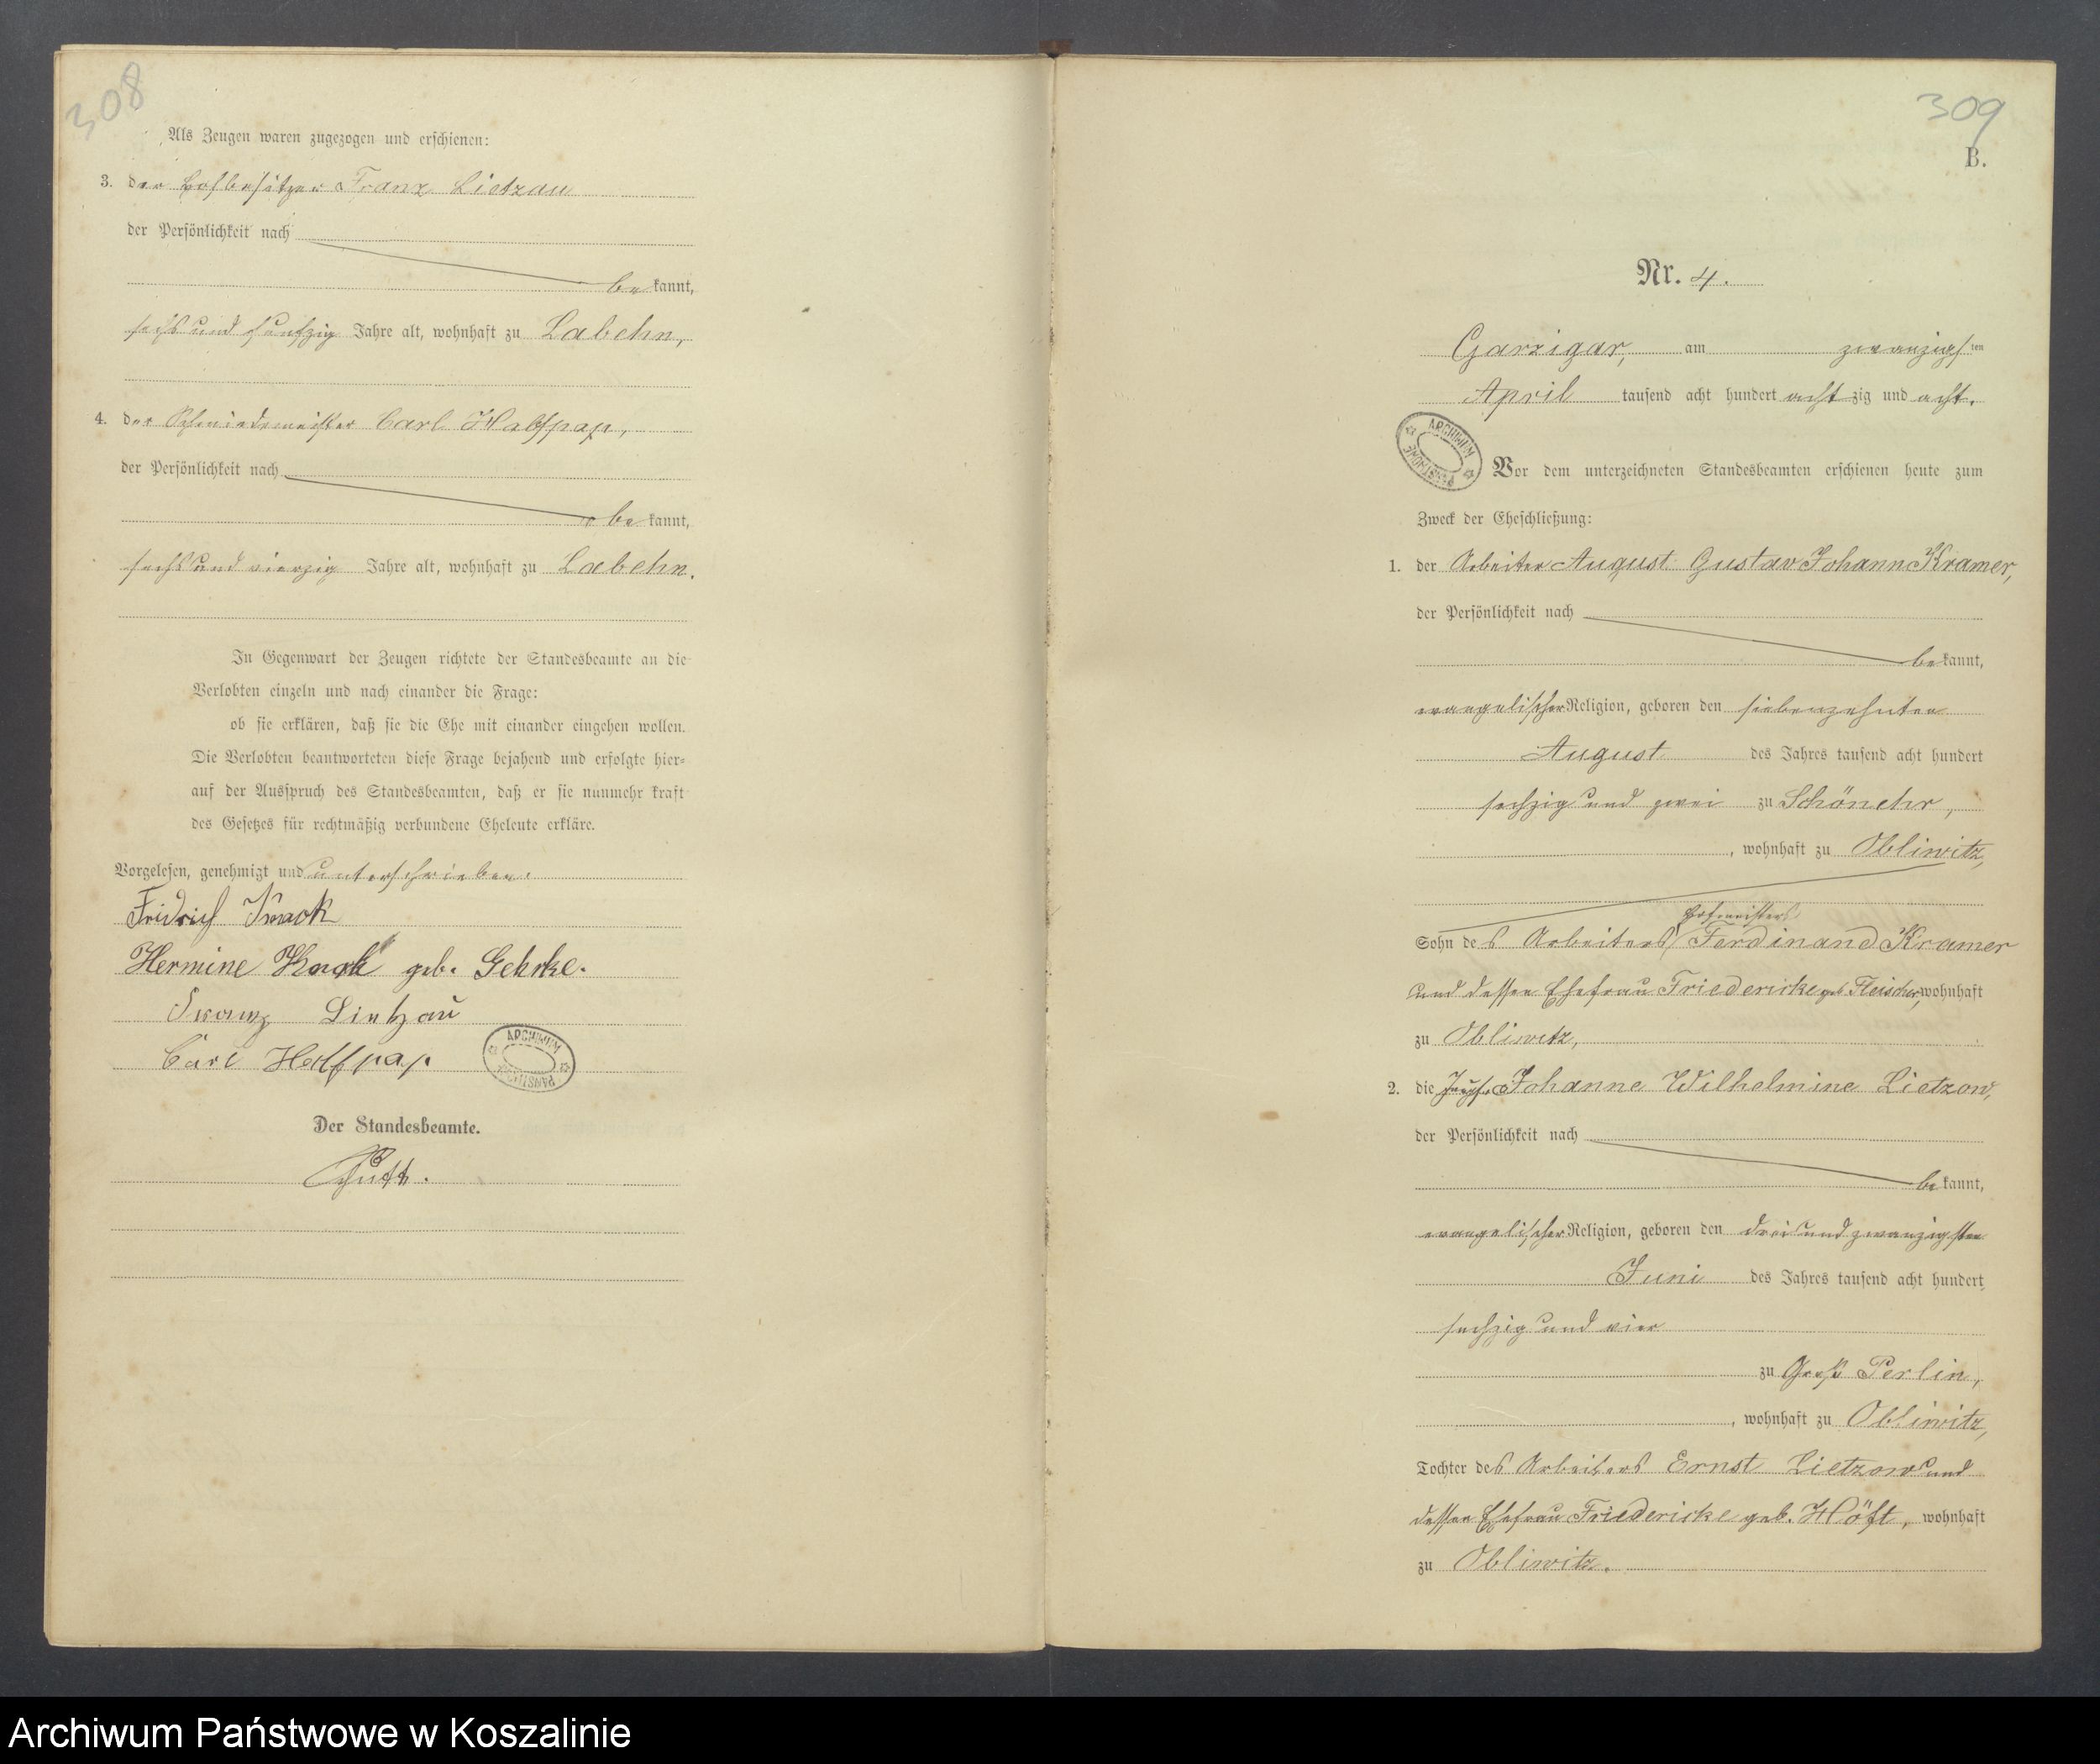 308
Als Zeugen waren zugezogen und erschienen:
3. der Hofbesitzer Franz Lietzau
der Persönlichkeit nach
be kannt,
sechs und funfzig Jahre alt, wohnhaft zu Labehn,
4. der Schmiedemeister Carl Halfpap,
der Persönlichkeit nach
be kannt,
sechs und vierzig Jahre alt, wohnhaft zu Labehn.
In Gegenwart der Zeugen richtete der Standesbeamte an die
Verlobten einzeln und nach einander die Frage:
ob sie erklären, daß sie die Ehe mit einander eingehen wollen.
Die Verlobten beantworteten diese Frage bejahend und erfolgte hier=
auf der Ausspruch des Standesbeamten, daß er sie nunmehr kraft
des Gesetzes für rechtmäßig verbundene Eheleute erkläre.
Vorgelesen, genehmigt und unterschrieben.
Fridrich Knack
Hermine Knack geb. Gehrke.
Franz Lietzau
Carl Halfpap.
ARCHIWUM PAŃSTWOWE
Der Standesbeamte.
309
B.
Nr. 4.
Garzigar, am zwanzigsten
April tausend acht hundert acht zig und acht.
ARCHIWUM PAŃSTWOWE
Vor dem unterzeichneten Standesbeamten erschienen heute zum
Zweck der Eheschließung:
1. der Arbeiter August Gustav Johann Kramer,
der Persönlichkeit nach
be kannt,
evangelischer Religion, geboren den siebenzehnten
August des Jahres tausend acht hundert
sechzig und zwei zu Schönehr,
, wohnhaft zu Obliwitz,
Hofmeisters
Sohn des Arbeiters Ferdinand Kramer
und dessen Ehefrau Friedericke geb. Fleischer, wohnhaft
zu Obliwitz,
2. die Jungfr. Johanne Wilhelmine Lietzow,
der Persönlichkeit nach
be kannt,
evangelischer Religion, geboren den drei und zwanzigsten
Juni des Jahres tausend acht hundert
sechzig und vier
zu Groß Perlin,
, wohnhaft zu Obliwitz,
Tochter des Arbeiters Ernst Lietzow und
dessen Ehefrau Friedericke geb. Höft, wohnhaft
zu Obliwitz.
Archiwum Państwowe w Koszalinie